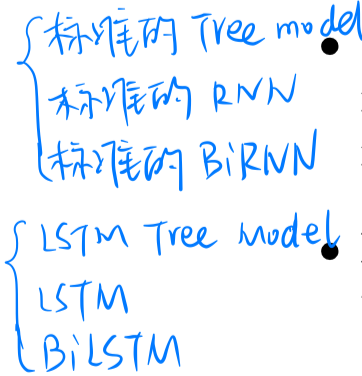 标准的 Tree model
标准的 RNN
标准的 BiRNN
LSTM Tree Model
LSTM
BiLSTM